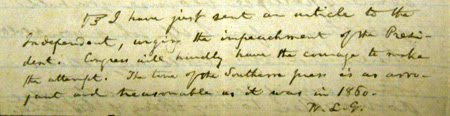 ☞ I have just sent an article to the
Independent, urging the impeachment of the Presi-
dent. Congress will hardly have the courage to make
the attempt. The tone of the Southern press is as arro-
gant and treasonable as it was in 1860.
W. L. G.